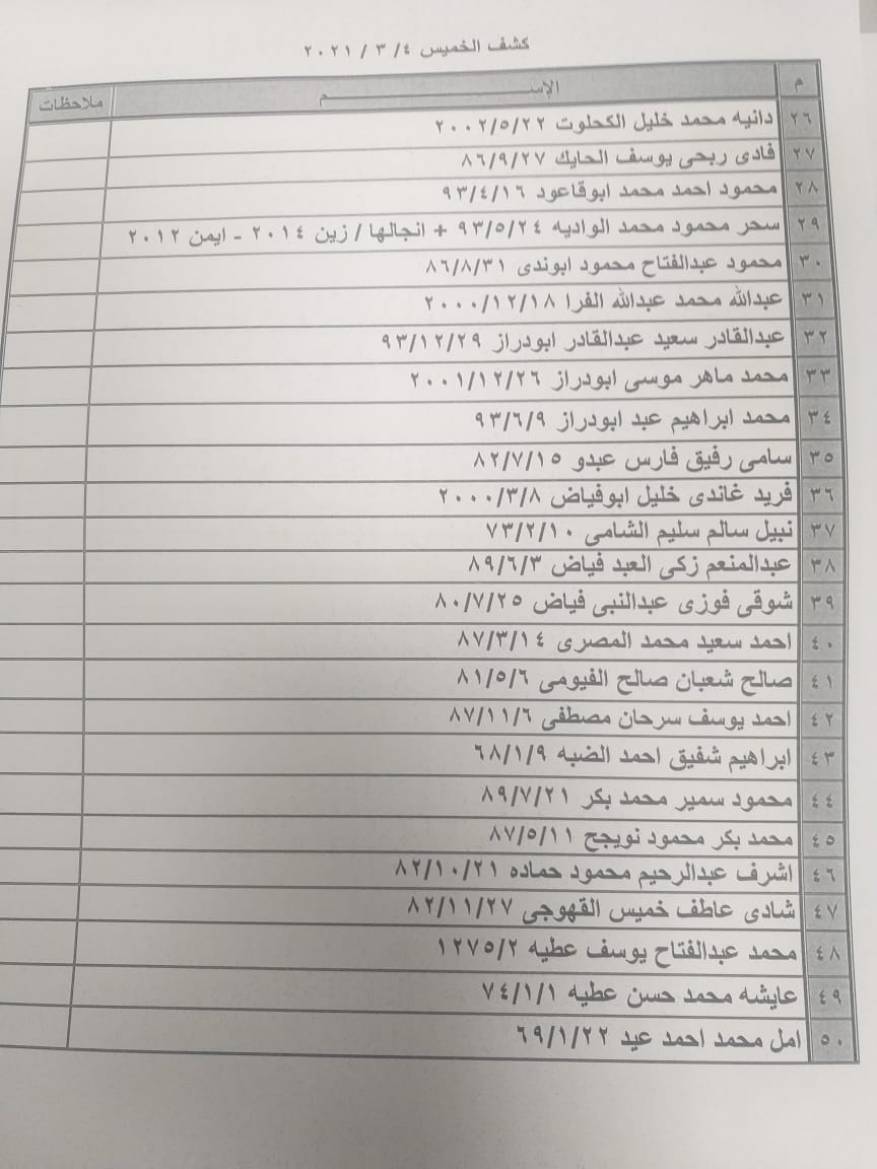 كشف الخميس ٤/ ٣ / ٢٠٢١
م الإســـــــــم ملاحظات
٢٦ دانيه محمد خليل الكحلوت ٢٠٠٢/٥/٢٢
٢٧ فادى ربحى يوسف الحايك ٨٦/٩/٢٧
٢٨ محمود احمد محمد ابوقاعود ٩٣/٤/١٦
٢٩ سحر محمود محمد الواديه ٩٣/٥/٢٤ + انجالها / زين ٢٠١٤ - ايمن ٢٠١٢
٣٠ محمود عبدالفتاح محمود ابوندى ٨٦/٨/٣١
٣١ عبدالله محمد عبدالله الفرا ٢٠٠٠/١٢/١٨
٣٢ عبدالقادر سعيد عبدالقادر ابودراز ٩٣/١٢/٢٩
٣٣ محمد ماهر موسى ابودراز ٢٠٠١/١٢/٢٦
٣٤ محمد ابراهيم عبد ابودراز ٩٣/٦/٩
٣٥ سامى رفيق فارس عبدو ٨٢/٧/١٥
٣٦ فريد غاندى خليل ابوفياض ٢٠٠٠/٣/٨
٣٧ نبيل سالم سليم الشامى ٧٣/٢/١٠
٣٨ عبدالمنعم زكى العبد فياض ٨٩/٦/٣
٣٩ شوقى فوزى عبدالنبى فياض ٨٠/٧/٢٥
٤٠ احمد سعيد محمد المصرى ٨٧/٣/١٤
٤١ صالح شعبان صالح الفيومى ٨١/٥/٦
٤٢ احمد يوسف سرحان مصطفى ٨٧/١١/٦
٤٣ ابراهيم شفيق احمد الضبه ٦٨/١/٩
٤٤ محمود سمير محمد بكر ٨٩/٧/٢١
٤٥ محمد بكر محمود نويجح ٨٧/٥/١١
٤٦ اشرف عبدالرحيم محمود حماده ٨٢/١٠/٢١
٤٧ شادى عاطف خميس القهوجى ٨٢/١١/٢٧
٤٨ محمد عبدالفتاح يوسف عطيه ١٢٧٥/٢
٤٩ عايشه محمد حسن عطيه ٧٤/١/١
٥٠ امل محمد احمد عيد ٦٩/١/٢٢